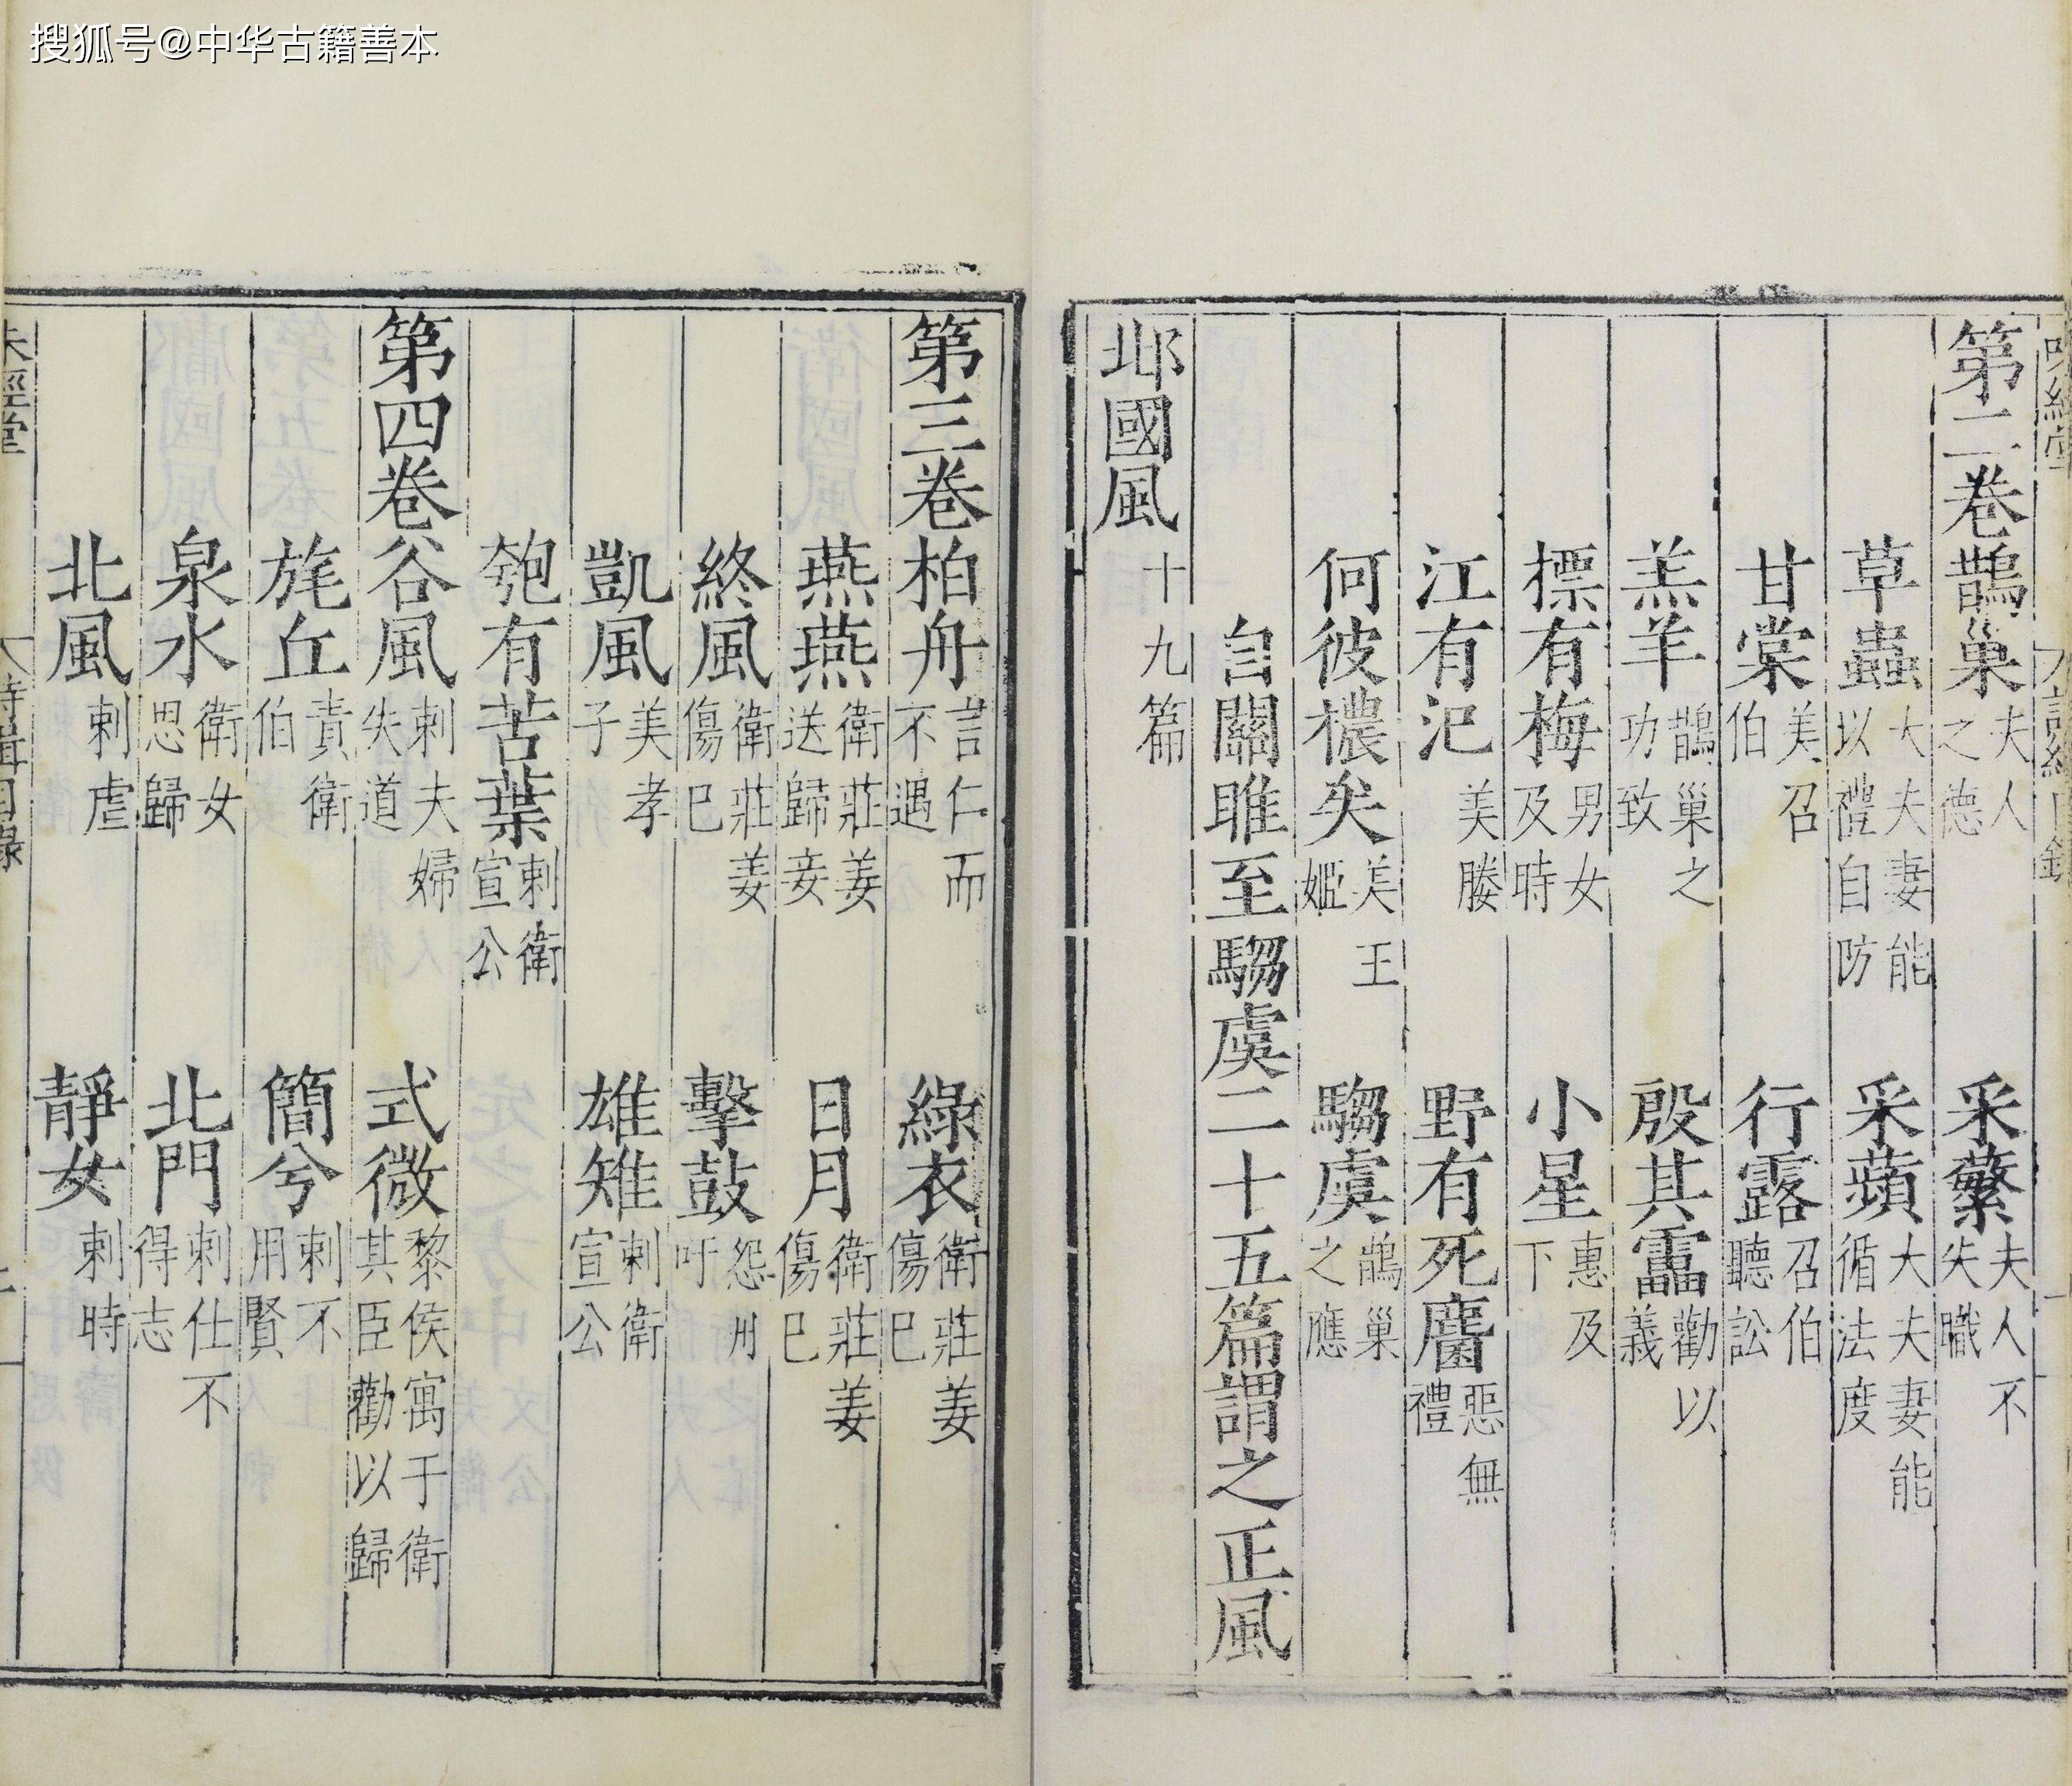 搜狐号@中华古籍善本
第二卷鵲巢夫人之德 采蘩夫人不失職
草蟲大夫妻能以禮自防 采蘋大夫妻能循法度
甘棠美召伯 行露召伯聽訟
羔羊鵲巢之功致 殷其靁勸以義
摽有梅男女及時 小星惠及下
江有汜美媵 野有死麕惡無禮
何彼襛矣美王姬 騶虞鵲巢之應
自關雎至騶虞二十五篇謂之正風
邶國風十九篇
第三卷柏舟言仁而不遇 綠衣衛莊姜傷巳
燕燕衛莊姜送歸妾 日月衛莊姜傷巳
終風衛莊姜傷巳 擊鼓怨州吁
凱風美孝子 雄雉刺衛宣公
匏有苦葉刺衛宣公
第四卷谷風刺夫婦失道 式微黎侯寓于衛其臣勸以歸
旄丘責衛伯 簡兮刺不用賢
泉水衛女思歸 北門刺仕不得志
北風刺虐 靜女刺時